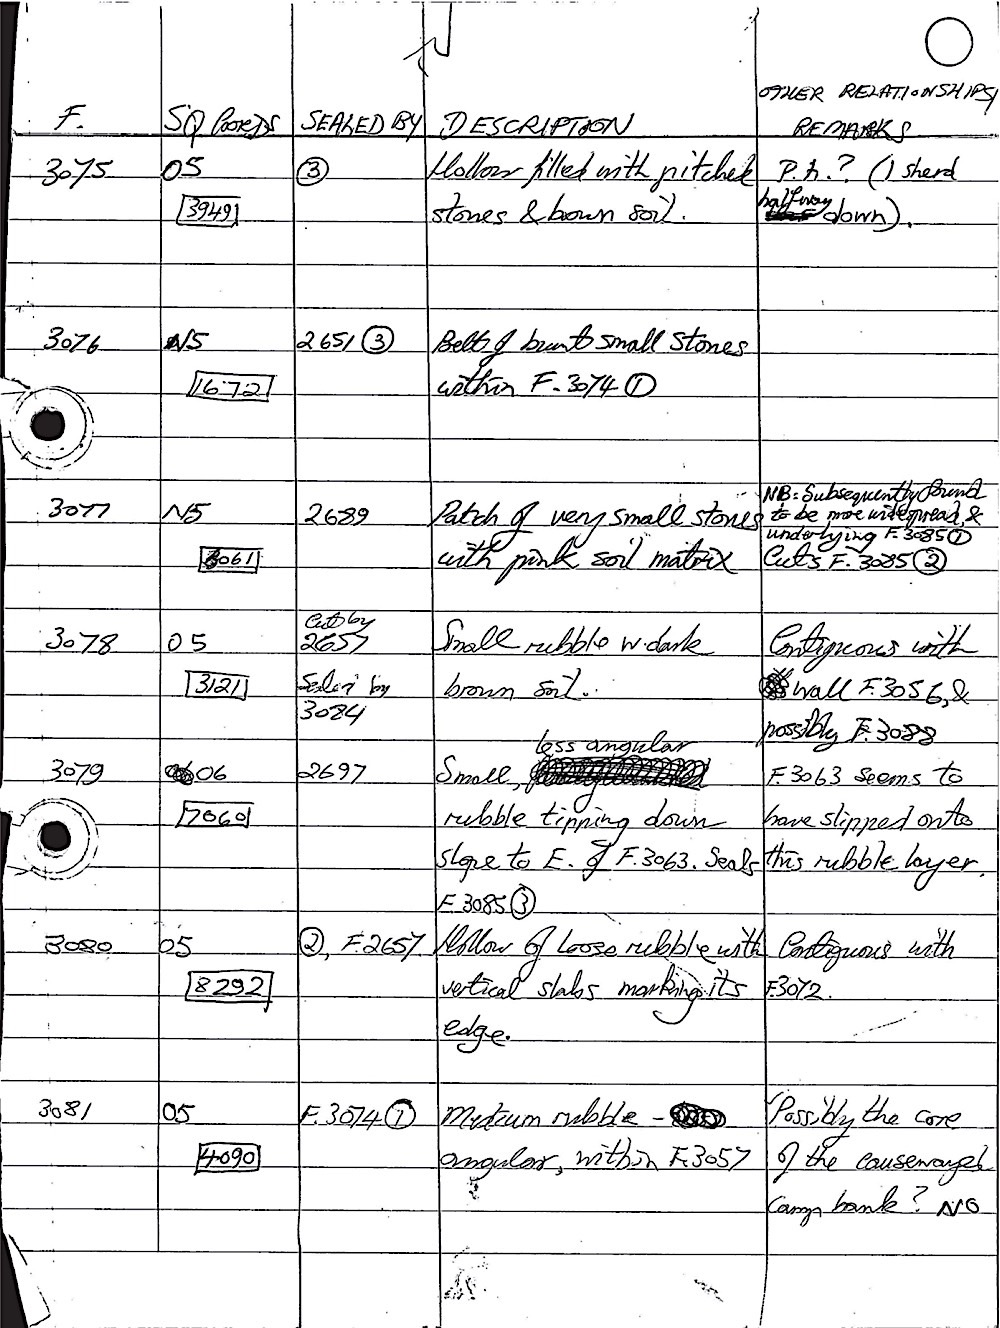 OTHER RELATIONSHIPS/
F. SQ COORDS SEALED BY DESCRIPTION REMARKS
3075 O5 ③ Hollow filled with pitched P.h.? (1 sherd
3949 stones & brown soil. halfway down).
3076 N5 2651 ③ Belt of burnt small stones
1672 within F.3074 ①
NB: Subsequently found
3077 N5 2689 Patch of very small stones to be more widespread, &
underlying F.3085 ①
3061 with pink soil matrix Cuts F.3085 ②
Cut by
3078 O5 2657 Small rubble w. dark Contiguous with
3121 Sealed by brown soil. wall F.3056, &
3084 possibly F.3088
less angular
3079 O6 2697 Small, F.3063 seems to
7060 rubble tipping down have slipped onto
slope to E. of F.3063. Seals this rubble layer.
F.3085 ③
3080 O5 ②, F.2657 Hollow of loose rubble with Contiguous with
8292 vertical slabs marking its F.3072.
edge.
3081 O5 F.3074 ① Medium rubble - Possibly the core
4090 angular, within F.3057 of the causewayed
camp bank? NO